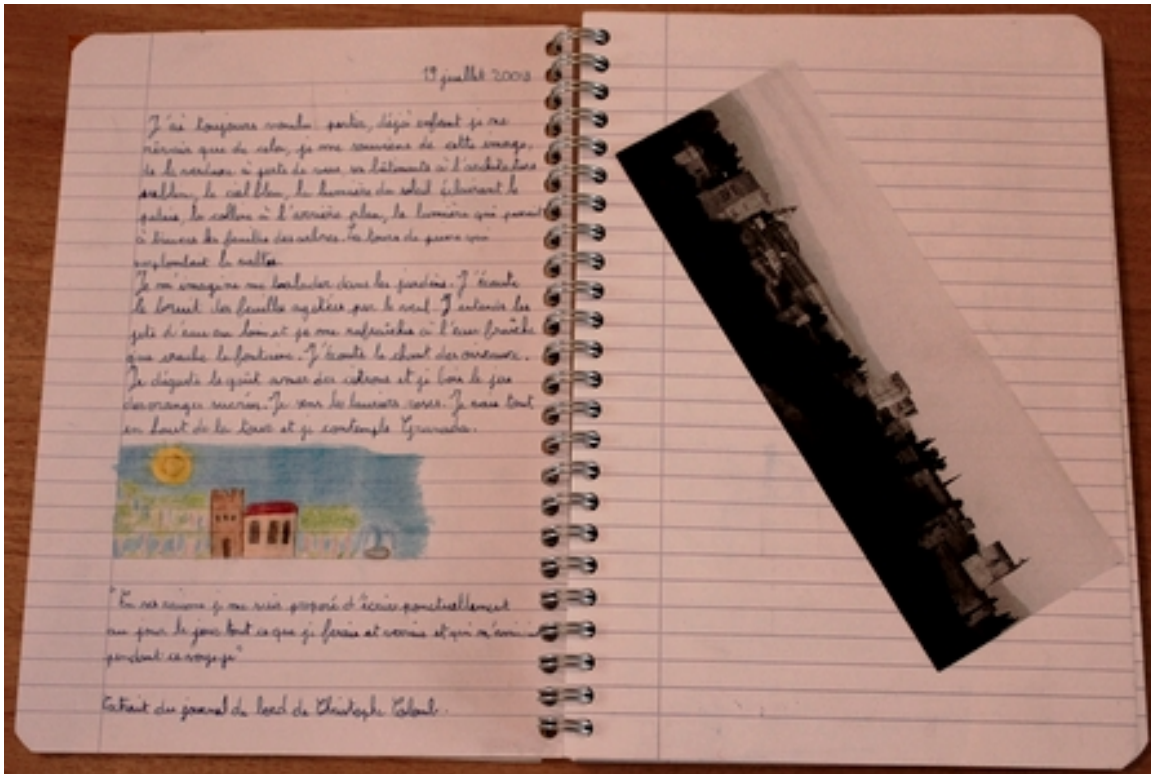 19 juillet 2003
J'ai toujours voulu partir, déjà enfant je ne
rêvais que de cela, je me souviens de cette image,
de la verdure à perte de vue, un bâtiment à l'architecture
le ciel bleu, la lumière du soleil éclairant le
palais, la colline à l'arrière plan, la lumière qui
à travers les feuilles des arbres. La tour de pierre qui
surplombant la vallée.
Je m'imagine me balader dans les jardins. J'écoute
le bruit des feuilles agitées par le vent. J'entends les
jets d'eau au loin et je me rafraîchis à l'eau fraîche
que crache la fontaine. J'écoute le chant des oiseaux.
Je déguste le goût amer des citrons et je bois le jus
des oranges sucrées. Je sens les lauriers roses. Je suis tout
en haut de la tour et je contemple Granada.
je me suis proposé d'écrire ponctuellement
au jour le jour tout ce que je ferais et verrais et qui
pendant ce voyage"
Extrait du journal de bord de Christophe Colomb.